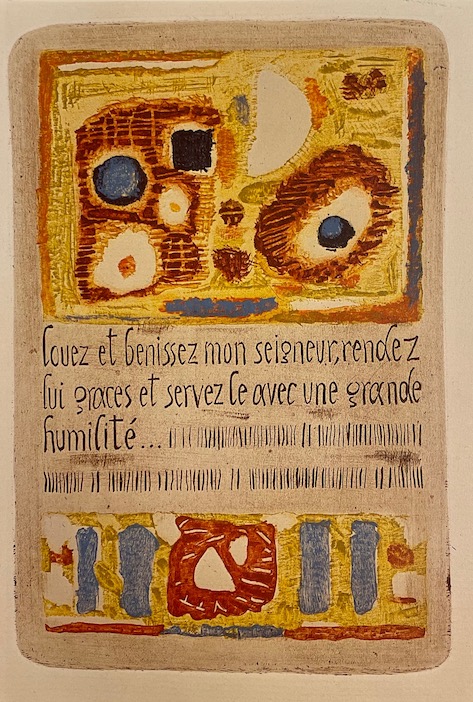 louez et benissez mon seigneur, rendez
lui graces et servez le avec une grande
humilité...